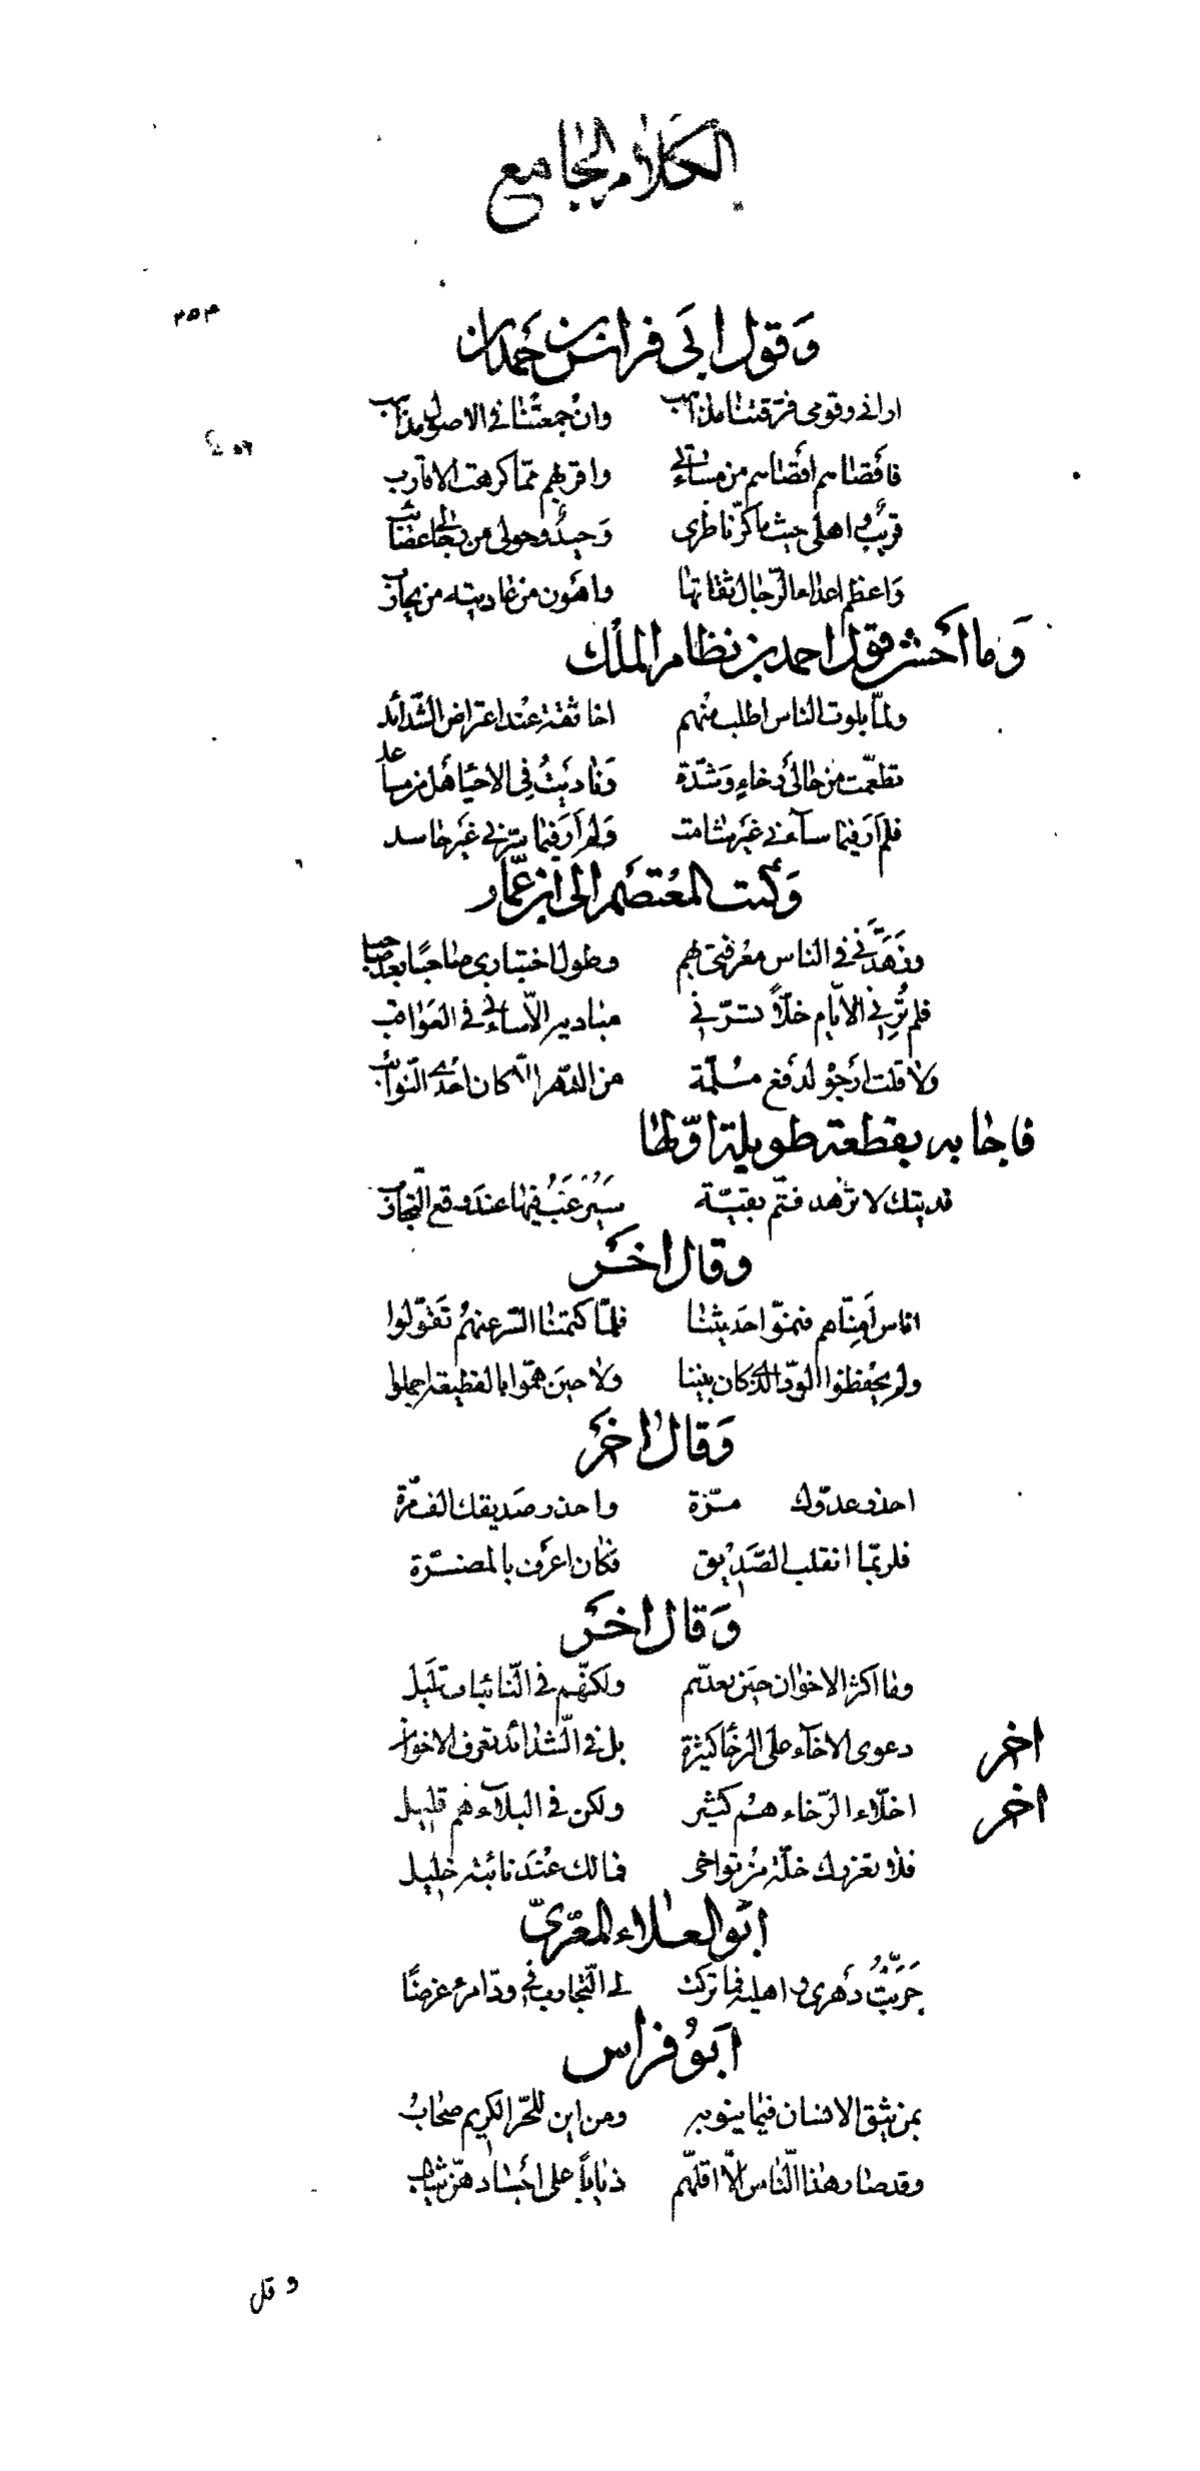 الكلام الجامع
٢٥٣
٥٦
وَقول ابى فراس بن حمدان
ارانى وقومى فرّقتنا مذاهب وان جمعتنا فى الاصول مذاهب
فاقصاهم اقصاهم من مساءتى واقربهم ممّا كرهت الاقارب
قريبٌ واهلى حيث ما كرّ ناظرى وَحيدٌ وحولى من رجالى عصائب
وَاعظم اعداء الرّجال ثقاتها واهون من عاديته من يحارب
وَما أحسن قول احمد بن نظام الملك
ولمّا بلوت الناس اطلب منهم اخا ثقة عند اعتراض الشّدائد
تطعّمت من حالى رخاءٍ وَشدّة وَناديتُ فى الاحيا هل من مساعد
فلم أرَ فيما ساءنى غير شامت وَلم أرَ فيما سرّنى غير حاسد
وَكتب المعتصم الى ابن عمّار
وزهّدنى فى الناس معرفتى بهم وطول اختبارى صاحبًا بعد صاحب
فلم تُرنى الايّام خلّاً تسرّنى مباديه الّا ساءنى فى العواقب
ولا قلت ارجو لدفع مسلمّة من الدهر الّا كان احدى النّوائب
فاجابه بقطعة طويلة اوّلها
فديتك لا تزهد فتمّ بقيّة سيُرغَبُ فيها عند وقع التّجارب
وقال اخر
اناس امنّاهم فنمّوا حديثنا فلمّا كتمنا السّر عنهم تقوّلوا
ولم يحفظوا الودّ الذى كان بيننا ولا حين همّوا بالقطيعة اجملوا
وَقال اخر
احذر عدوّك مرّة واحذر صديقك الف مرّة
فلربّما انقلب الصّديق فكان اعرف بالمضرّة
وَقال اخر
وما اكثر الاخوان حين تعدّهم ولكنّهم فى النّائبات قليل
اخر دعوى الاخآء على الرخا كثيرة بل فى الشّدائد تعرف الاخوان
اخر اخلّاء الرّخاء هم كثير ولكن فى البلآء هم قليل
فلا تغررك خلّة من تواخى فمالك عند نائبة خليل
ابو العلاء المعرّىّ
جرّبتُ دهرى واهليه فما تركت لى التّجارب فى ودّ امرء غرضًا
ابو فراس
بمن يثق الانسان فيما ينوبه ومن اين للحرّ الكريم صحابُ
وقد صار هذا النّاس الّا اقلّهم ذئاباً على اجسادهنّ ثياب
وقال